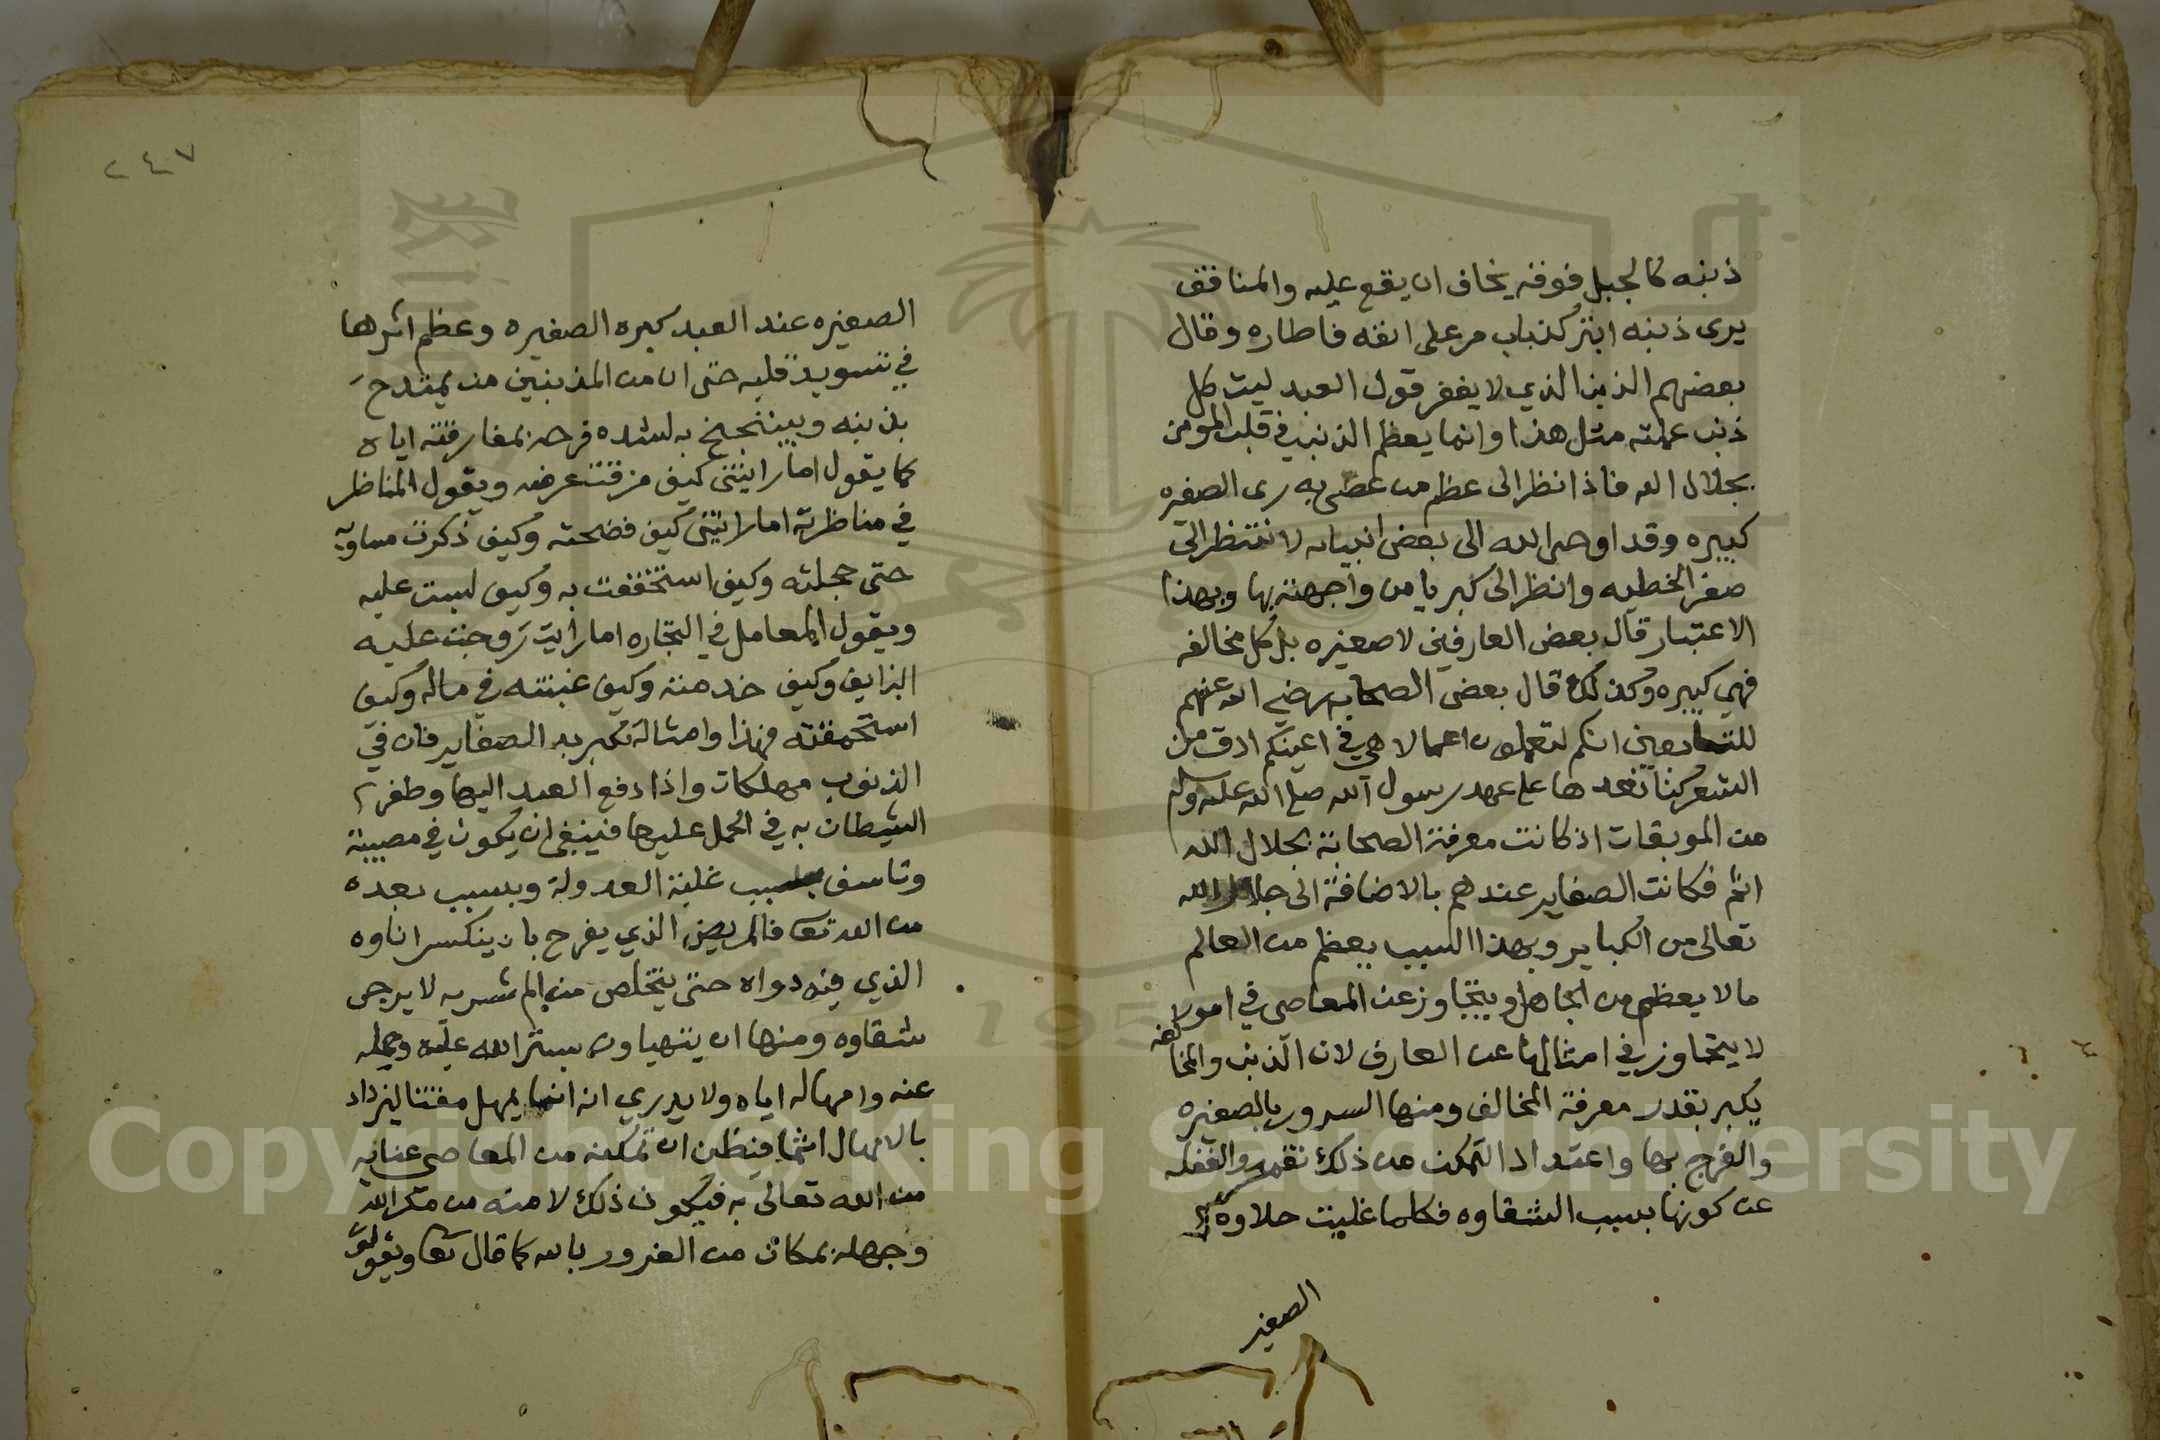 ذنبه كالجبل فوقه يخاف ان يقع عليه والمنافق
يرى ذنبه كذباب مر على انفه فاطاره وقال
بعضهم الذنب الذي لا يغفر قول العبد ليت كل
ذنب عملته مثل هذا وانما يعظم الذنب في قلب المومن
بجلال الله فاذا نظر الى عظم من عصى به رى الصغيره
كبيره وقد اوحى الله الى بعض انبيايه لا تنظر الى
صغر الخطيه وانظر الى كبريا من واجهته بها وبهذا
الاعتبار قال بعض العارفين لا صغيره بل كل مخالفه
فهي كبيره وكذلك قال بعض الصحابه رضي الله عنهم
للتابعين انكم لتعملون اعمالا هي في اعينكم ادق من
الشعر كنا نعدها على عهد رسول الله صلى الله عليه وسلم
من الموبقات اذ كانت معرفة الصحابة بجلال الله
اتم فكانت الصغاير عندهم بالاضافة الى جلال الله
تعالى من الكباير وبهذا السبب يعظم من العالم
ما لا يعظم من الجاهل ويتجاوز عن المعاصي في امور
لا يتجاوز في امثالها عن العارف لان الذنب والمخالفه
يكبر بقدر معرفة المخالف ومنها السرور بالصغيره
والفرح بها واعتداد التمكن من ذلك نعمه والغفله
عن كونها بسبب الشقاوه فكلما غلبت حلاوة
الصغير
٢٤٧
الصغيره عند العبد كبره الصغيره وعظم اثرها
في تسويد قلبه حتى ان من المذنبين من يمتدح
بذنبه ويتبجح به لشده فرحه بمقارفته اياه
كما يقول اما رايتني كيف مزقت عرضه ويقول المناظر
في مناظرته اما رايتني كيف فضحته وكيف ذكرت مساويه
حتى خجلته وكيف استخففت به وكيف لبست عليه
ويقول المعامل في التجاره اما رايت روجت عليه
الزايف وكيف خدعته وكيف غبنته في ماله وكيف
استحمقته فهذا وامثاله تكبر به الصغاير فان في
الذنوب مهلكات واذا دفع العبد اليها وظفر
الشيطان به في الحمل عليها فينبغي ان يكون في مصيبة
وتاسف بسبب غلبة العدو له وبسبب بعده
من الله تعا فالمريض الذي يفرح بان ينكسر اناوه
الذي فيه دواه حتى يتخلص من الم شربه لا يرجى
شفاوه ومنها ان يتهاون بستر الله عليه وحمله
عنه وامهاله اياه ولا يدري انه انما يمهل مقتا ليزداد
بالامهال اثما فيظن ان تمكنه من المعاصي عنايه
من الله تعالى به فيكون ذلك لامنه من مكر الله
وجهله بمكان من الغرور بالله كما قال تعا ويقولون
Copyright © King Saud University